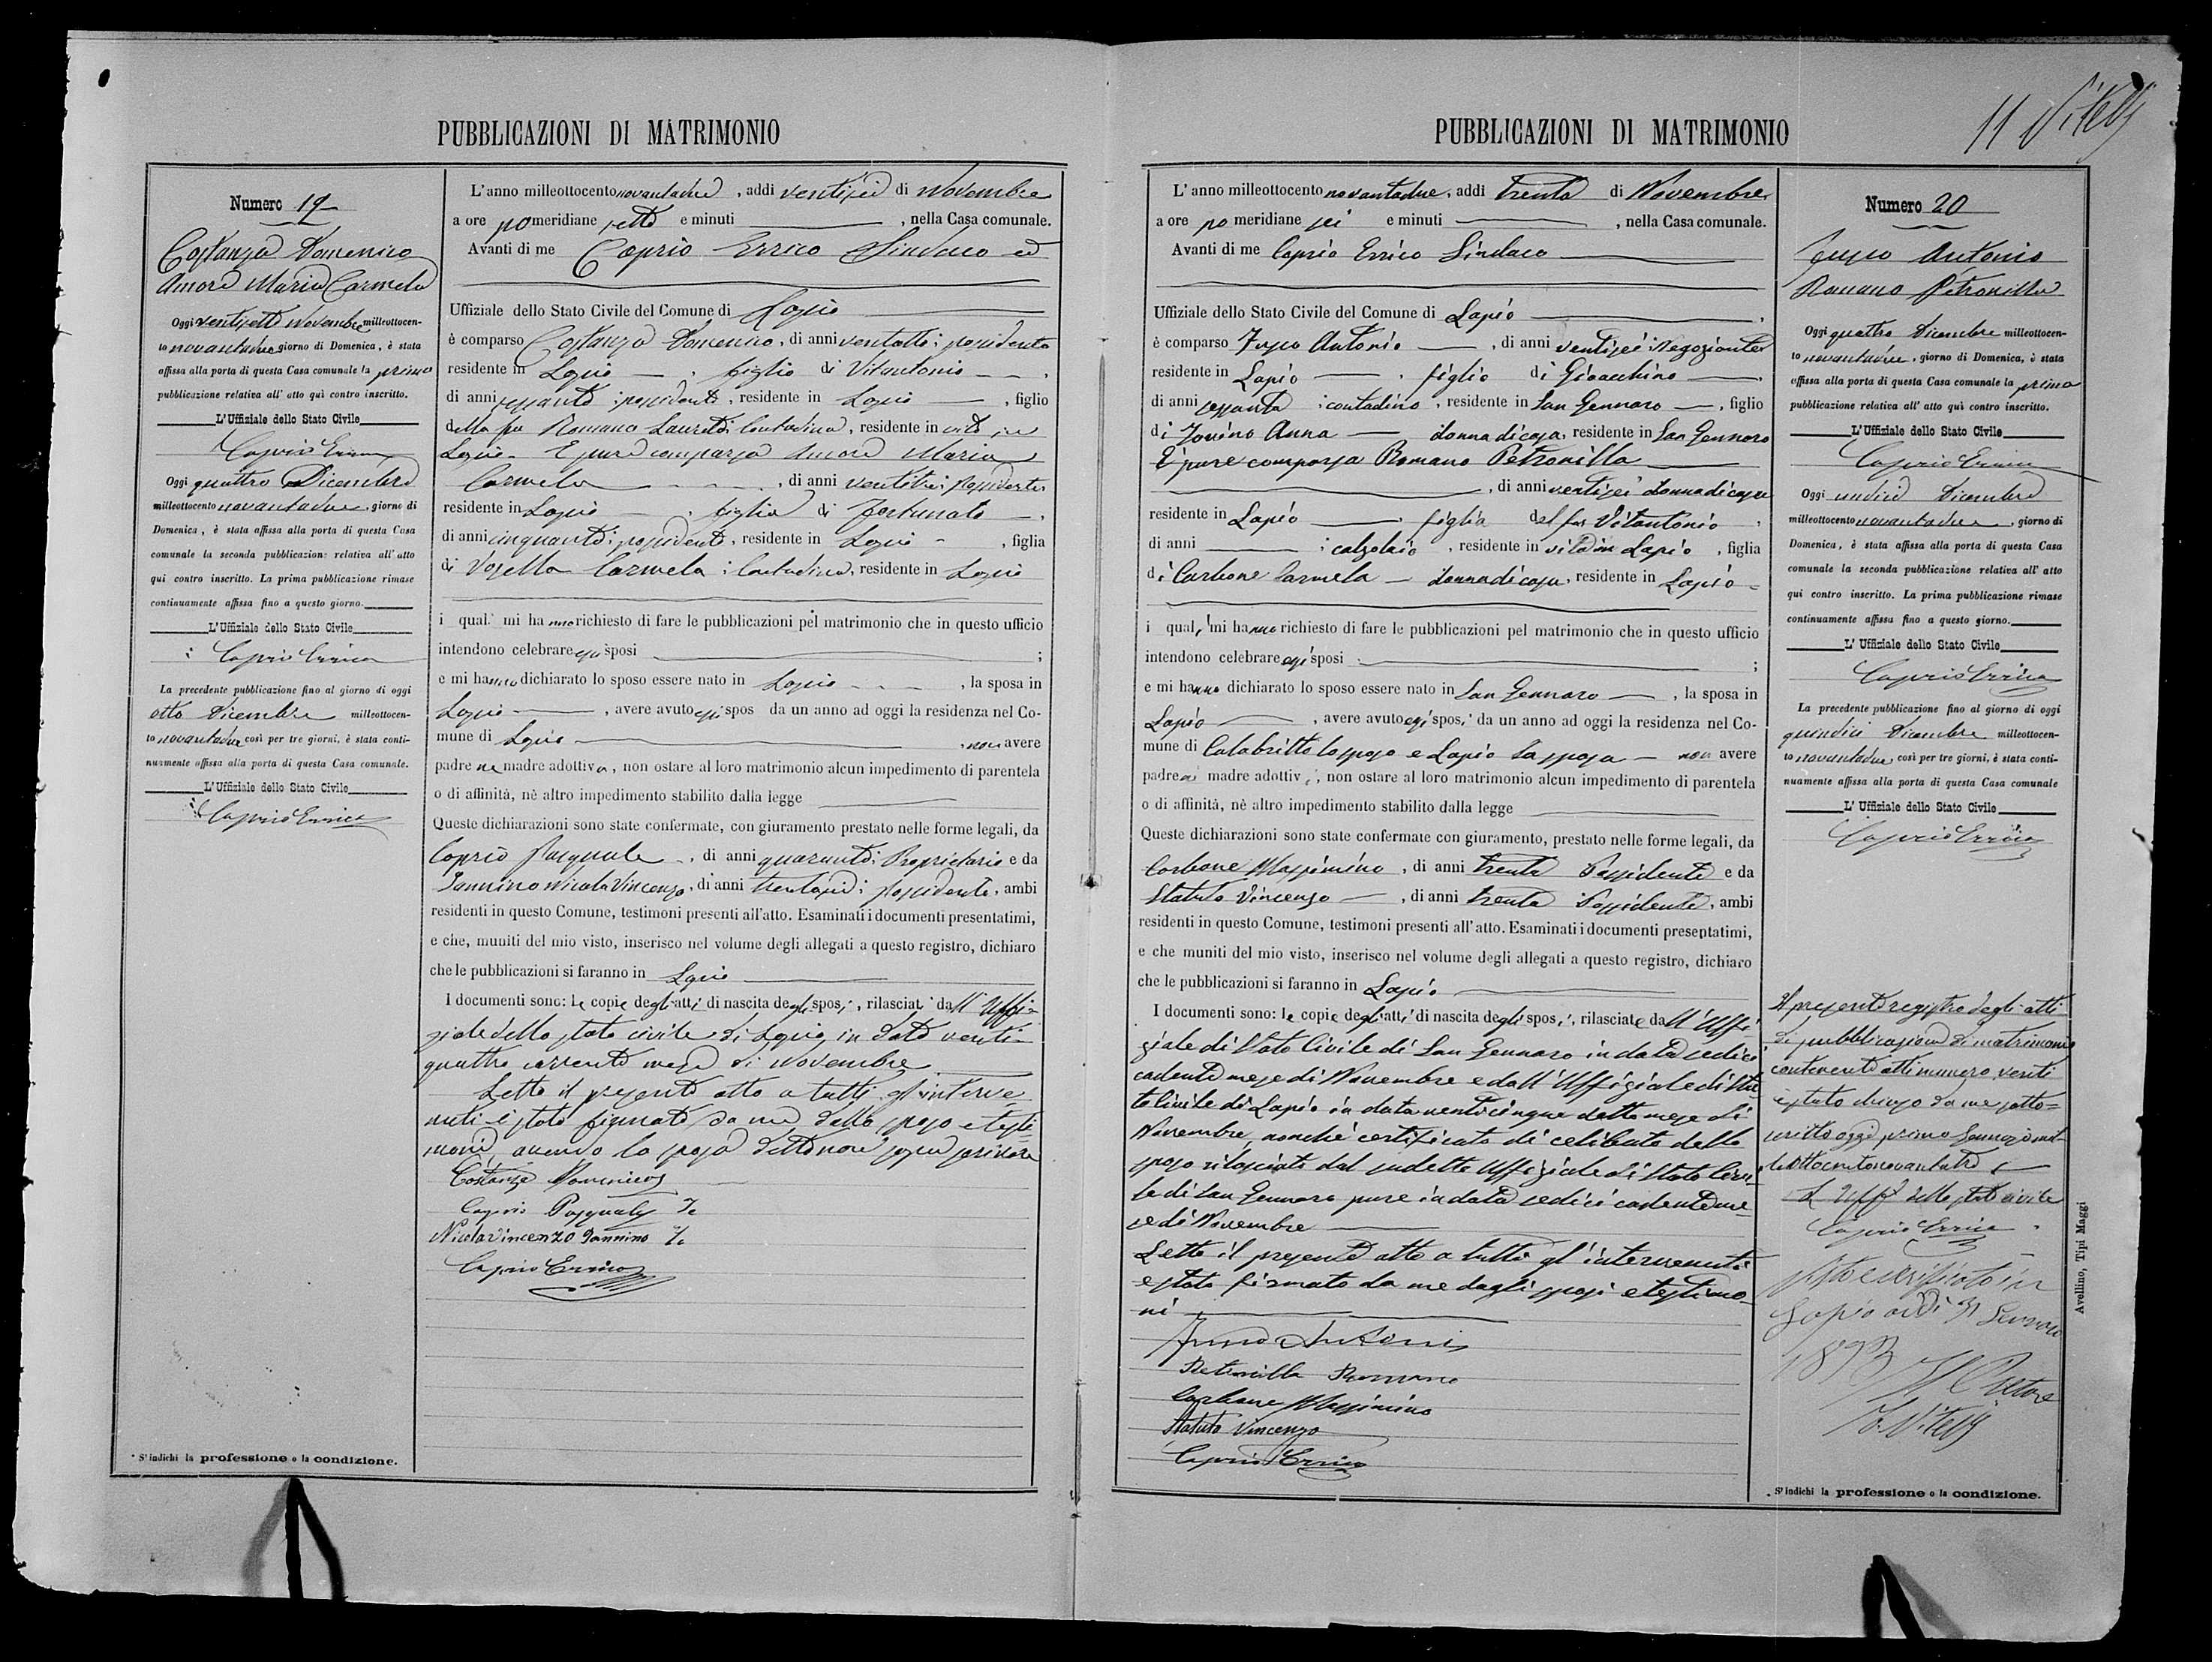 11 Vitelli
PUBBLICAZIONI DI MATRIMONIO
Numero 19
Costanza Domenico
Amore Maria Carmela
Oggi ventisette Novembre milleottocen-
to novantadue giorno di Domenica, è stata
affissa alla porta di questa Casa comunale la prima
pubblicazione relativa all'atto quì contro inscritto.
L'Uffiziale dello Stato Civile
Caprio Errico
Oggi quattro Dicembre
milleottocento novantadue, giorno di
Domenica, è stata affissa alla porta di questa Casa
comunale la seconda pubblicazione relativa all'atto
qui contro inscritto. La prima pubblicazione rimase
continuamente affissa fino a questo giorno.
L'Uffiziale dello Stato Civile
Caprio Errico
La precedente pubblicazione fino al giorno di oggi
otto Dicembre milleottocen-
to novantadue così per tre giorni, è stata conti-
nuamente affissa alla porta di questa Casa comunale.
L'Uffiziale dello Stato Civile
Caprio Errico
* S'indichi la professione o la condizione.
L'anno milleottocento novantadue, addi ventisei di Novembre
a ore pomeridiane sette e minuti , nella Casa comunale.
Avanti di me Caprio Errico Sindaco ed
Uffiziale dello Stato Civile del Comune di Lapio
è comparso Costanza Domenico, di anni ventotto; possidente
residente in Lapio , figlio di Vitantonio
di anni sessanta; possidente, residente in Lapio , figlio
della fu Romano Laureta; Contadina, residente in vita in
Lapio. E pure comparsa Amore Maria
Carmela , di anni ventitre; possidente
residente in Lapio , figlia di Fortunato
di anni cinquanta; possidente, residente in Lapio , figlia
di Vosella Carmela; Contadina, residente in Lapio
i quali mi hanno richiesto di fare le pubblicazioni pel matrimonio che in questo ufficio
intendono celebrare essi sposi ;
e mi hanno dichiarato lo sposo essere nato in Lapio , la sposa in
Lapio , avere avuto essi spos da un anno ad oggi la residenza nel Co-
mune di Lapio , non avere
padre ne madre adottiva, non ostare al loro matrimonio alcun impedimento di parentela
o di affinità, nè altro impedimento stabilito dalla legge
Queste dichiarazioni sono state confermate, con giuramento prestato nelle forme legali, da
Caprio Pasquale , di anni quaranta; Proprietario e da
Iannino Nicola Vincenzo, di anni trentasei; possidente, ambi
residenti in questo Comune, testimoni presenti all'atto. Esaminati i documenti presentatimi,
e che, muniti del mio visto, inserisco nel volume degli allegati a questo registro, dichiaro
che le pubblicazioni si faranno in Lapio
I documenti sono: le copie degli atti di nascita degli sposi, rilasciati dall'Uffi-
ziale dello stato civile di Lapio in data venti-
quattro corrente mese di Novembre
Letto il presente atto a tutti gl'interve
nuti è stato firmato da me, dallo sposo e testi
moni, avendo la sposa detto non saper firmare
Costanza Domenico
Caprio Pasquale Te
Nicolavincenzo Iannino Te
Caprio Errico
PUBBLICAZIONI DI MATRIMONIO
L'anno milleottocento novantadue, addi trenta di Novembre
a ore pomeridiane sei e minuti , nella Casa comunale.
Avanti di me Caprio Errico Sindaco
Uffiziale dello Stato Civile del Comune di Lapio
è comparso Fusco Antonio , di anni ventisei; Negoziante
residente in Lapio , figlio di Gioacchino
di anni sessanta; contadino, residente in San Gennaro , figlio
di Iovino Anna donna di casa, residente in San Gennaro
E' pure comparsa Romano Petronilla
, di anni ventisei donna di casa
residente in Lapio , figlia del fu Vitantonio
di anni ; calzolaio, residente in vita in Lapio, figlia
di Carbone Carmela donna di casa, residente in Lapio
i quali mi hanno richiesto di fare le pubblicazioni pel matrimonio che in questo ufficio
intendono celebrare essi sposi ;
e mi hanno dichiarato lo sposo essere nato in San Gennaro , la sposa in
Lapio , avere avuto essi sposi da un anno ad oggi la residenza nel Co-
mune di Calabritto lo sposo e Lapio la sposa non avere
padre ne madre adottivi, non ostare al loro matrimonio alcun impedimento di parentela
o di affinità, nè altro impedimento stabilito dalla legge
Queste dichiarazioni sono state confermate con giuramento, prestato nelle forme legali, da
Carbone Massimino , di anni trenta Possidente e da
Statuto Vincenzo , di anni trenta Possidente, ambi
residenti in questo Comune, testimoni presenti all'atto. Esaminati i documenti presentatimi,
e che muniti del mio visto, inserisco nel volume degli allegati a questo registro, dichiaro
che le pubblicazioni si faranno in Lapio
I documenti sono: le copie degli atti di nascita degli sposi, rilasciate dall'Uffi
ziale di Stato Civile di San Gennaro in data sedici
cadente mese di Novembre e dall'Uffiziale di Sta
to Civile di Lapio in data venticinque detto mese di
Novembre, nonchè certificato di celibato dello
sposo rilasciato dal sudetto Uffiziale di Stato Civi
le di San Gennaro pure in data sedici cadente me
se di Novembre
Letto il presente atto a tutti gl'intervenuti
e stato firmato da me dagli sposi e testimo
ni
Fusco Antonio
Petronilla Romano
Carbone Massimino
Statuto Vincenzo
Caprio Errico
Numero 20
Fusco Antonio
Romano Petronilla
Oggi quattro Dicembre milleottocen-
to novantadue, giorno di Domenica, è stata
affissa alla porta di questa Casa comunale la prima
pubblicazione relativa all'atto quì contro inscritto.
L'Uffiziale dello Stato Civile
Caprio Errico
Oggi undici Dicembre
milleottocento novantadue, giorno di
Domenica, è stata affissa alla porta di questa Casa
comunale la seconda pubblicazione relativa all'atto
qui contro inscritto. La prima pubblicazione rimase
continuamente affissa fino a questo giorno.
L'Uffiziale dello Stato Civile
Caprio Errico
La precedente pubblicazione fino al giorno di oggi
quindici Dicembre milleottocen-
to novantadue così per tre giorni, è stata conti-
nuamente affissa alla porta di questa Casa comunale
L'Uffiziale dello Stato Civile
Caprio Errico
Il presente registro degli atti
di pubblicazione di matrimonio
contenente atti numero venti
è stato chiuso da me sotto=
scritto oggi primo Gennaio mil-
leottocentonovantatre
L'Uff. dello stato civile
Caprio Errico
Visto e verificato in
Lapio addì 31 Gennaio
1893 Il Pretore
Vitelli
* S'indichi la professione o la condizione.
Avellino, Tipi Maggi